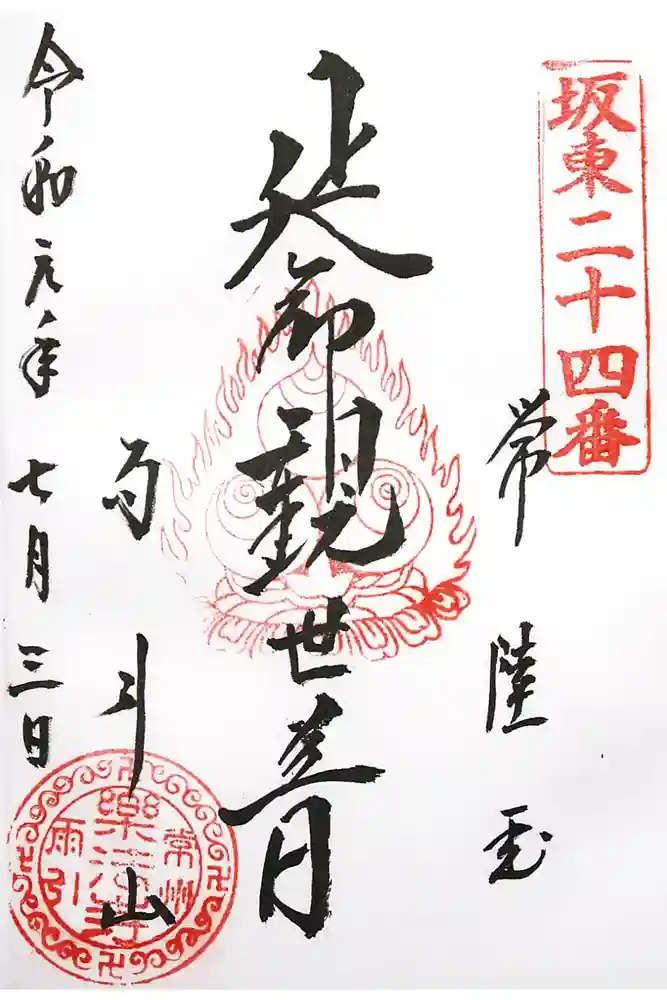 坂東二十四番
常陸国
延命観世音
雨引山
令和元年七月三日
常州
樂法寺
雨引